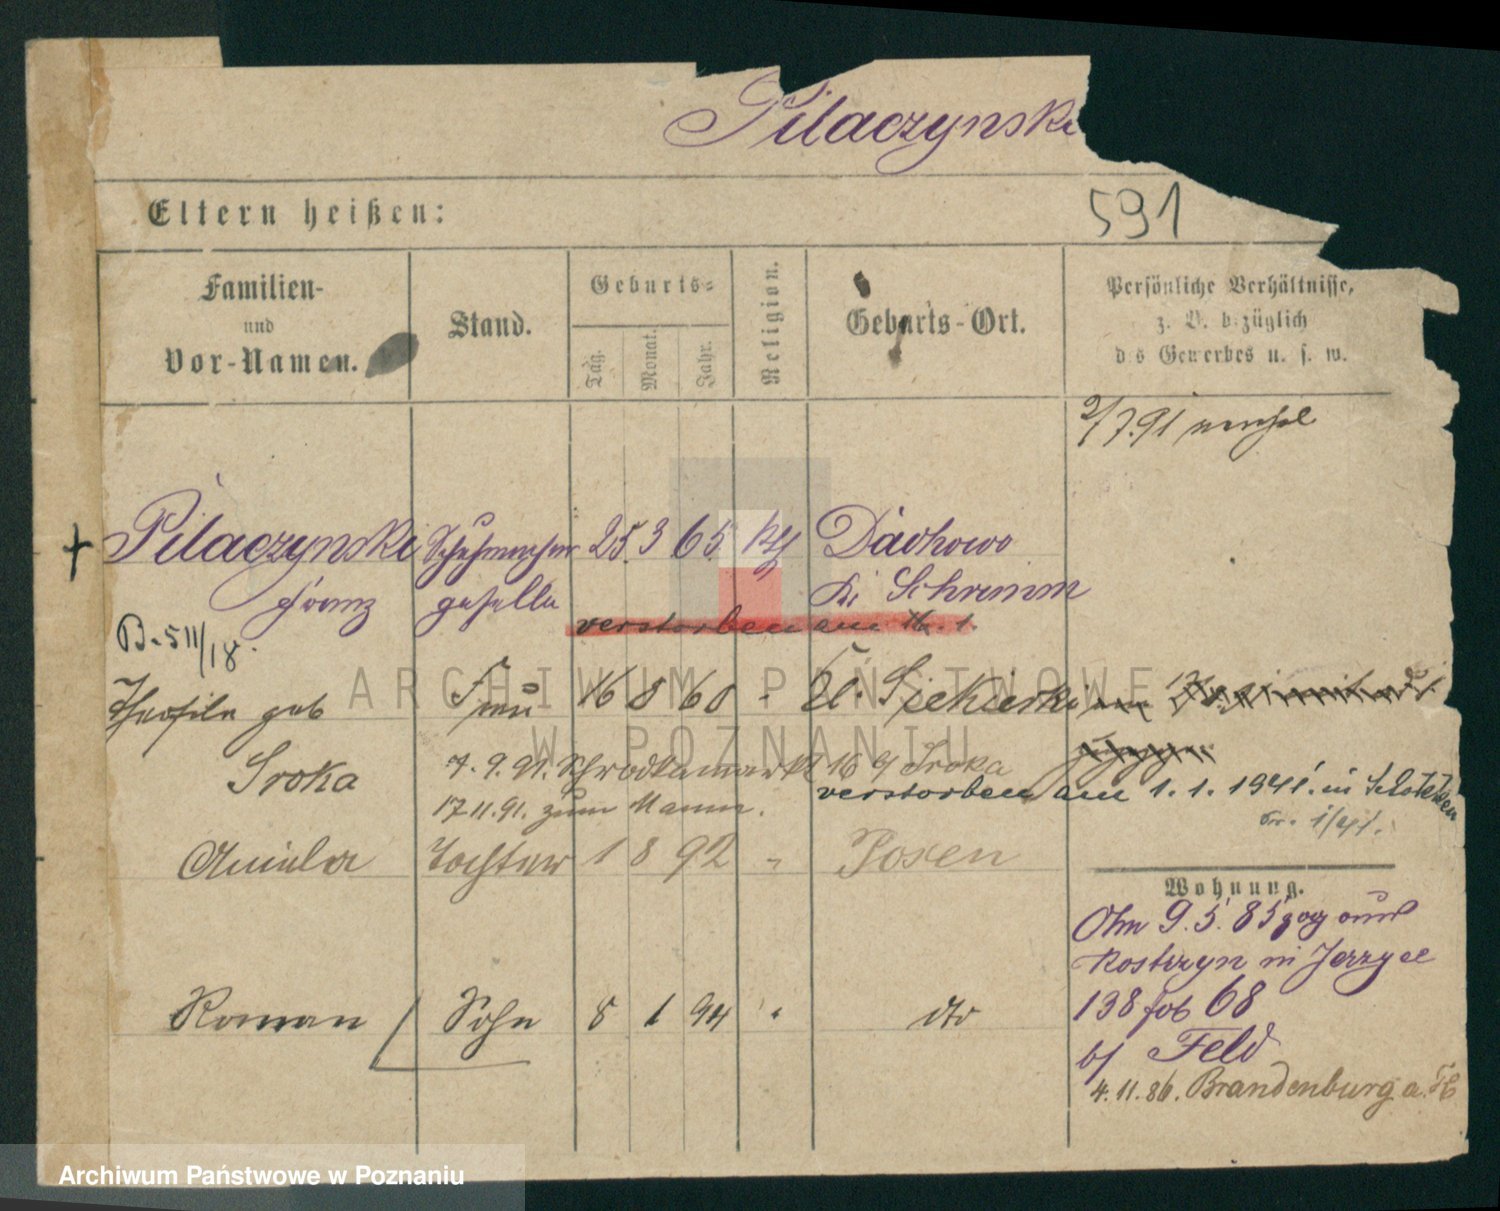 Pilaczynski
591
Eltern heißen:
Familien-
und
Vor-Namen.
Stand.
Geburts-
Tag.
Monat.
Jahr.
Religion.
Geburts-Ort.
Persönliche Verhältnisse,
z. B. bezüglich
des Gewerbes u. s. w.
2/7.91
Pilaczynski Schuhmacher 25. 3 65 kth Dachowo
Franz geselle Kr Schrimm
verstorben am 1.
B. 511/18.
Theofila geb Frau 16 8 60 -
Sroka 7. 9. 91. Schrodkamarkt 16 Sroka
17 11. 91. zum Mann. verstorben am 1. 1. 1941. in
Tochter 1 8 92 " Posen
Roman Sohn 8 1 94 " dto
Wohnung.
9. 5. 85 zog aus
Kostrzyn in Jerzyce
138 68
b/ Feld
4. 11. 86. Brandenburg a. H
ARCHIWUM PAŃSTWOWE
W POZNANIU
Archiwum Państwowe w Poznaniu